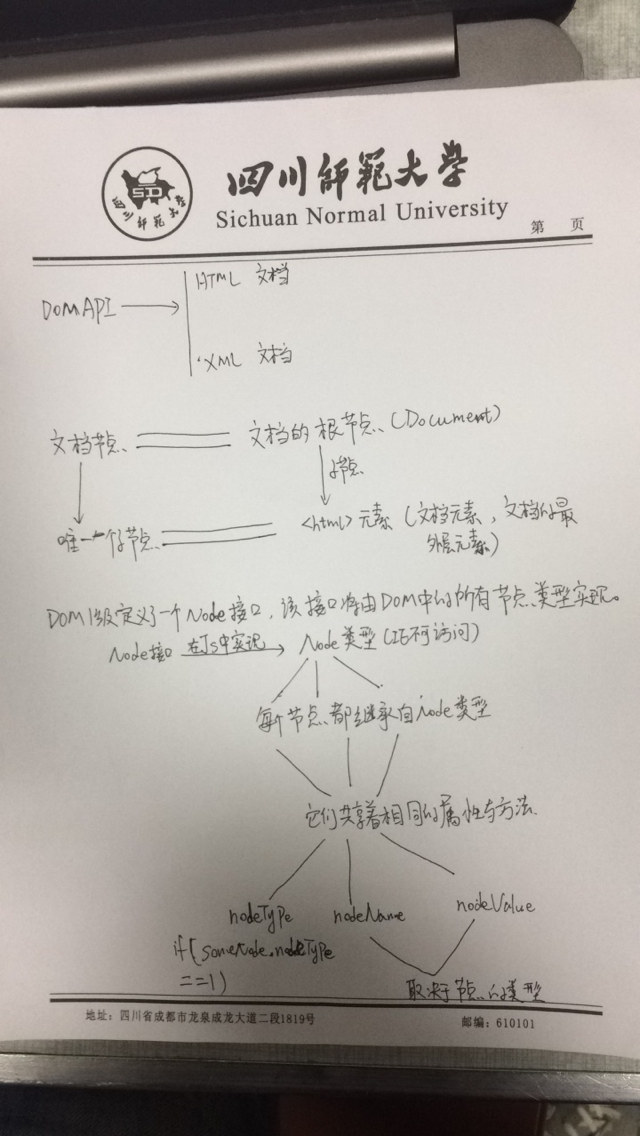 四川師範大学
四川師範大学
Sichuan Normal University
第 页
HTML 文档
DOM API
XML 文档
文档节点 文档的根节点 (Document)
子节点
唯一个子节点 <html> 元素 (文档元素, 文档的最
外层元素)
DOM1级定义了一个Node接口, 该接口将由DOM中的所有节点类型实现。
Node接口 在JS中实现 Node类型 (IE不可访问)
每个节点都继承自Node类型
它们共享着相同的属性与方法
nodeType nodeName nodeValue
if(someNode.nodeType
==1)
取决于节点的类型
地址: 四川省成都市龙泉成龙大道二段1819号 邮编: 610101